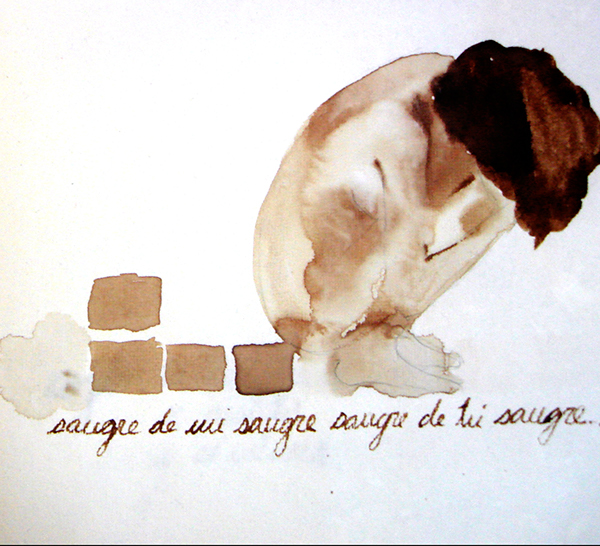 sangre de mi sangre sangre de tu sangre...